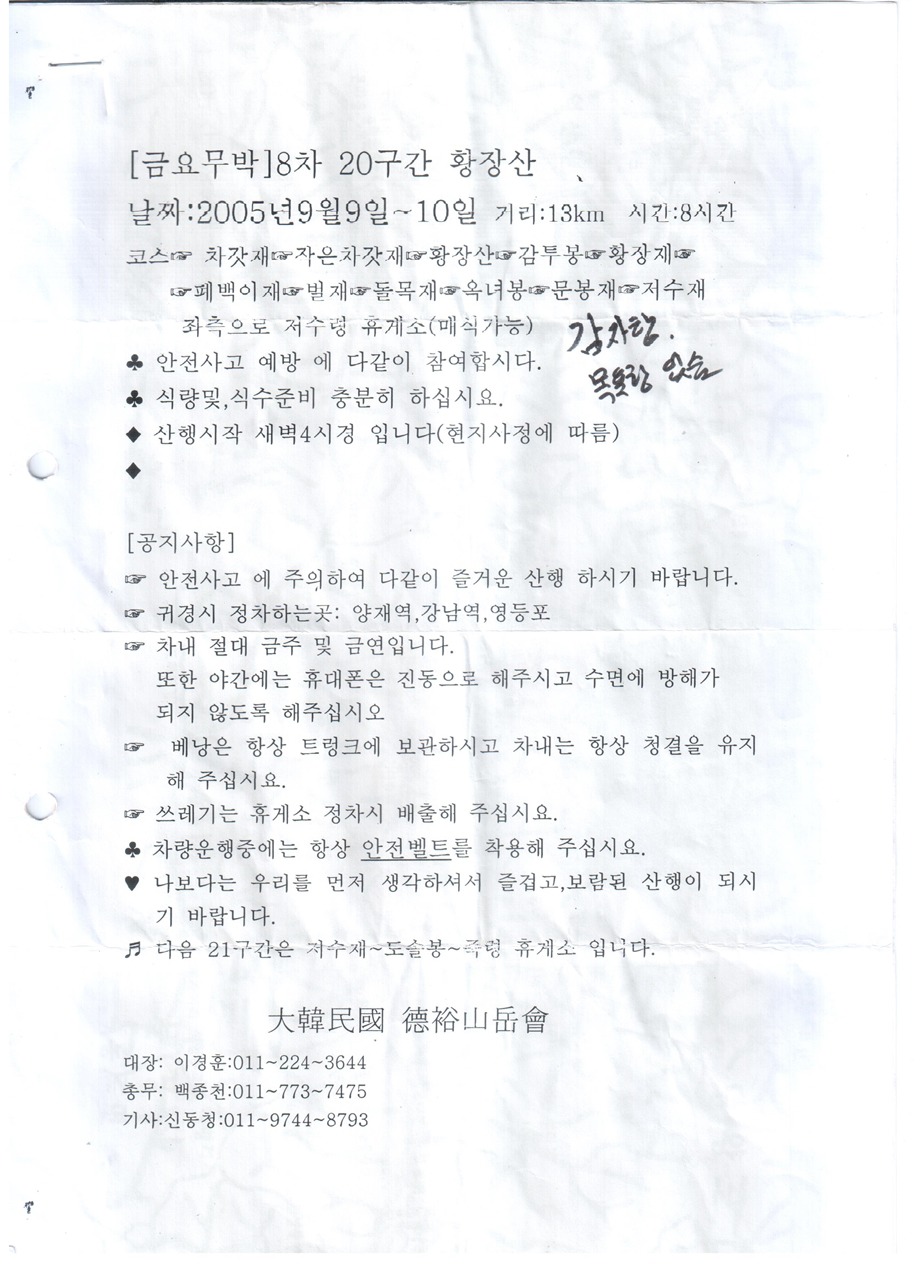 [금요무박]8차 20구간 황장산
날짜:2005년9월9일~10일 거리:13km 시간:8시간
코스☞ 차갓재☞작은차갓재☞황장산☞감투봉☞황장재☞
☞폐백이재☞벌재☞돌목재☞옥녀봉☞문봉재☞저수재
좌측으로 저수령 휴게소(매식가능)
감자탕.
목욕탕 있슴
♣ 안전사고 예방 에 다같이 참여합시다.
♣ 식량및,식수준비 충분히 하십시요.
◆ 산행시작 새벽4시경 입니다(현지사정에 따름)
◆
[공지사항]
☞ 안전사고 에 주의하여 다같이 즐거운 산행 하시기 바랍니다.
☞ 귀경시 정차하는곳: 양재역,강남역,영등포
☞ 차내 절대 금주 및 금연입니다.
또한 야간에는 휴대폰은 진동으로 해주시고 수면에 방해가
되지 않도록 해주십시오
☞ 베낭은 항상 트렁크에 보관하시고 차내는 항상 청결을 유지
해 주십시요.
☞ 쓰레기는 휴게소 정차시 배출해 주십시요.
♣ 차량운행중에는 항상 안전벨트를 착용해 주십시요.
♥ 나보다는 우리를 먼저 생각하셔서 즐겁고,보람된 산행이 되시
기 바랍니다.
♬ 다음 21구간은 저수재~도솔봉~죽령 휴게소 입니다.
大韓民國 德裕山岳會
대장: 이경훈:011~224~3644
총무: 백종천:011~773~7475
기사:신동청:011~9744~8793